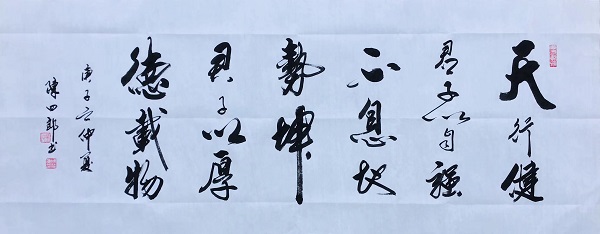 天行健
君子以自强
不息地
勢坤
君子以厚
德載物
庚子之仲夏
陳四郎书